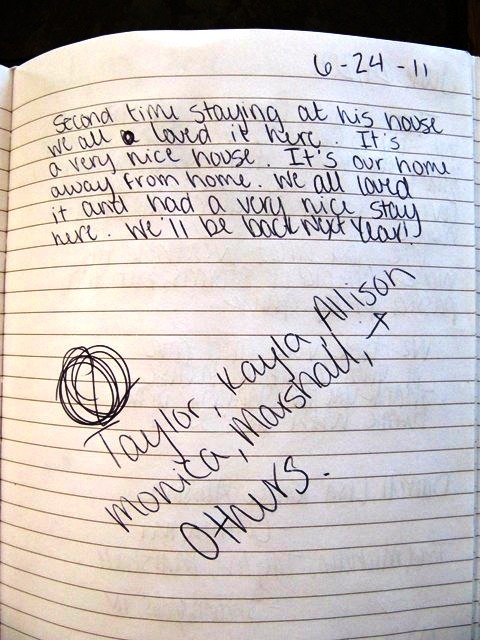 6-24-11
Second time staying at his house
we all loved it here. It's
a very nice house. It's our home
away from home. We all loved
it and had a very nice stay
here. We'll be back Next Year!
Taylor, Kayla Allison
Monica, Marshall, +
Others.